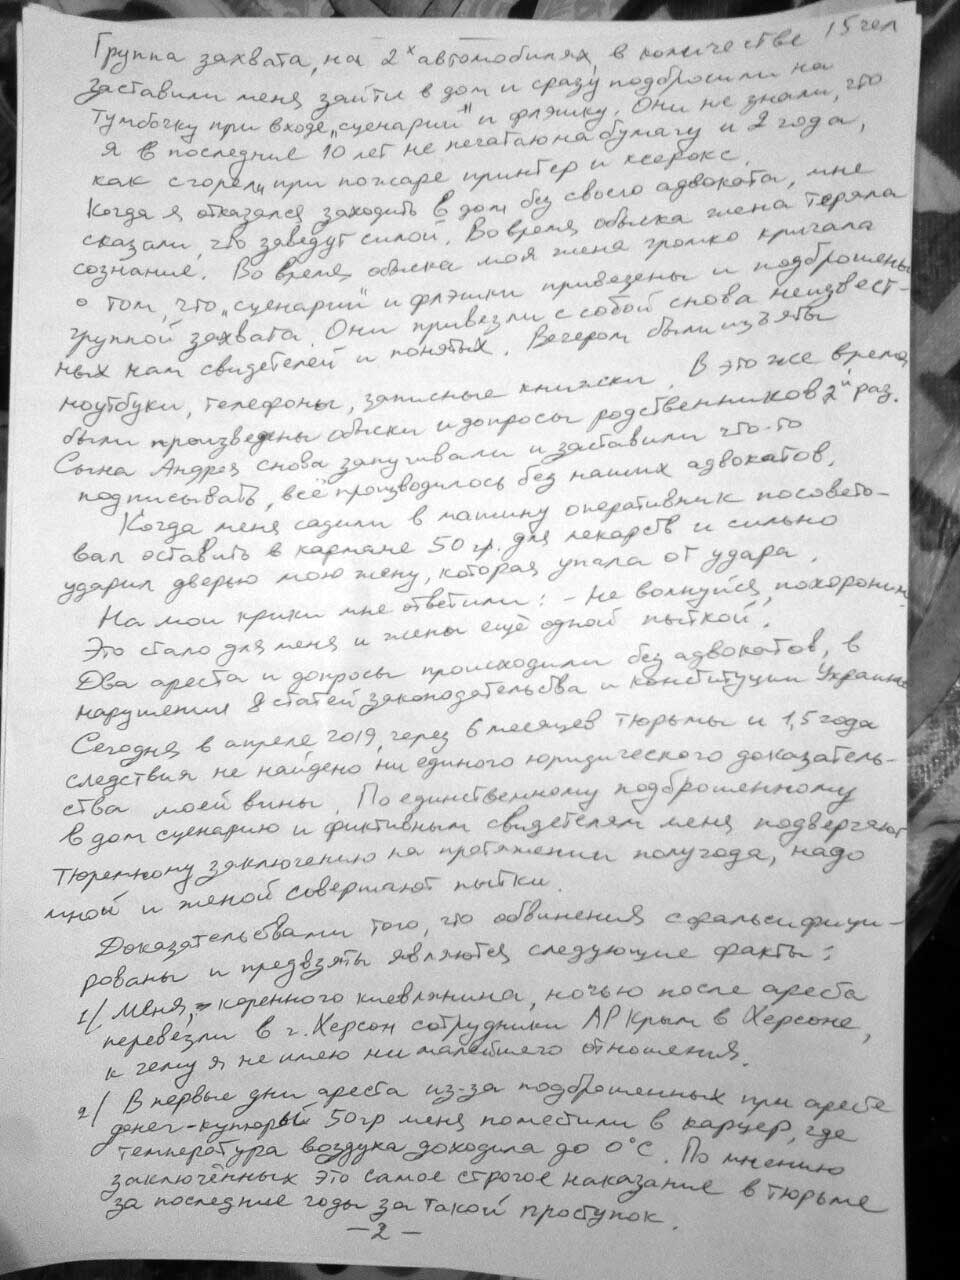 Группа захвата, на 2х автомобилях, в количестве 15 чел
заставили меня зайти в дом и сразу подбросили на
тумбочку при входе „сценарий" и флэшку. Они не знали, что
я в последние 10 лет не печатаю на бумагу и 2 года,
как сгорели при пожаре принтер и ксерокс.
Когда я отказался заходить в дом без своего адвоката, мне
сказали, что заведут силой. Во время обыска жена теряла
сознание. Во время обыска моя жена громко кричала
о том, что „сценарий" и флэшки привезены и подброшены
группой захвата. Они привезли с собой снова неизвест-
ных нам свидетелей и понятых. Вечером были изъяты
ноутбуки, телефоны, записные книжки. В это же время
были произведены обыски и допросы родственников 2й раз.
Сына Андрея снова запугивали и заставили что-то
подписывать, всё производилось без наших адвокатов.
Когда меня садили в машину оперативник посовето-
вал оставить в кармане 50 гр. для лекарств и сильно
ударил дверью мою жену, которая упала от удара.
На мои крики мне ответили: - Не волнуйся, похороним.
Это стало для меня и жены ещё одной пыткой.
Два ареста и допросы происходили без адвокатов, в
нарушении 8 статей законодательства и конституции Украины
Сегодня в апреле 2019, через 6 месяцев тюрьмы и 1,5 года
следствия не найдено ни единого юридического доказатель-
ства моей вины. По единственному подброшенному
в дом сценарию и фиктивным свидетелям меня подвергают
тюремному заключению на протяжении полугода, надо
мной и женой совершают пытки.
Доказательствами того, что обвинения сфальсифици-
рованы и предвзяты являются следующие факты:
1/ Меня, - коренного киевлянина, ночью после ареста
перевезли в г. Херсон сотрудники АР Крым в Херсоне,
к чему я не имею ни малейшего отношения.
2/ В первые дни ареста из-за подброшенных при аресте
денег-купюры 50 гр меня поместили в карцер, где
температура воздуха доходила до 0°С. По мнению
заключённых это самое строгое наказание в тюрьме
за последние годы за такой проступок.
- 2 -